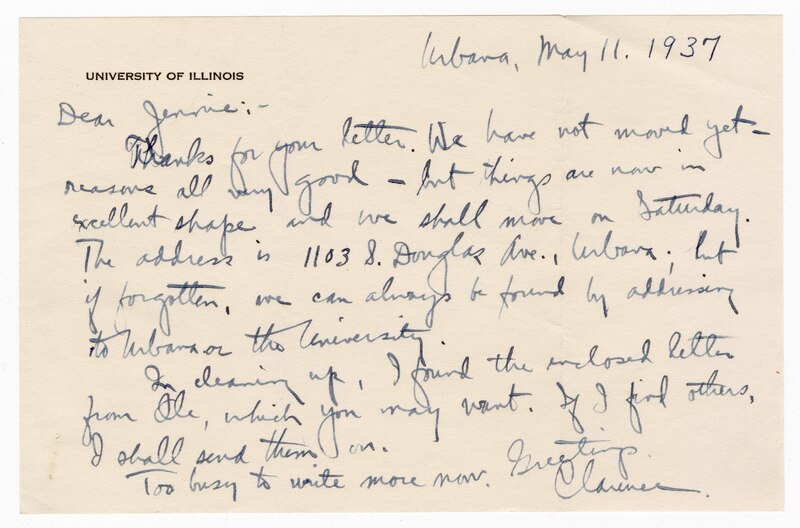 Urbana, May 11. 1937
UNIVERSITY OF ILLINOIS
Dear Jennie:-
Thanks for your letter. We have not moved yet -
reasons all very good - but things are now in
excellent shape and we shall move on Saturday.
The address is 1103 S. Douglas Ave., Urbana, but
if forgotten, we can always be found by addressing
to Urbana or the University.
In cleaning up, I found the enclosed letter
from Ole, which you may want. If I find others,
I shall send them on.
Too busy to write more now. Greetings.
Clarence.